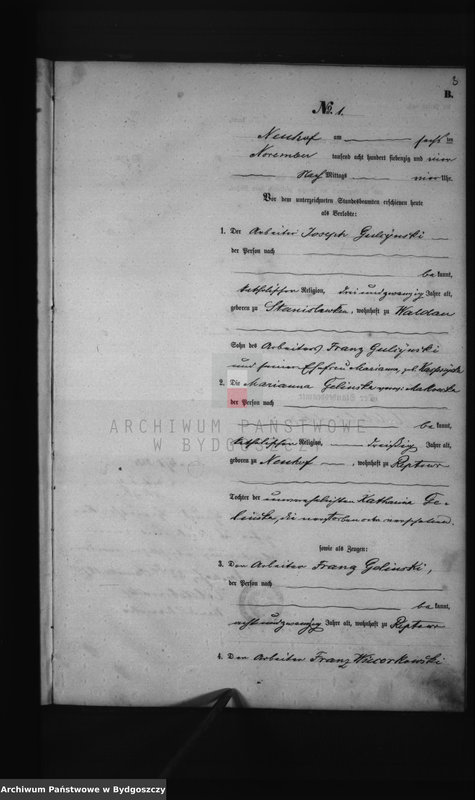 3
B.
No 1.
Neuhof am sechsten
November tausend acht hundert siebenzig und vier
Nach Mittags vier Uhr.
Vor dem unterzeichneten Standesbeamten erschienen heute
als Verlobte:
1. Der Arbeiter Joseph Gulczynski
der Person nach
bekannt,
katholischen Religion, drei und zwanzig Jahre alt,
geboren zu Stanislawken, wohnhaft zu Waldau
Sohn des Arbeiters Franz Gulczynski
und seiner Ehefrau Marianna, geb.
2. Die Marianna Golinska Makowska
der Person nach
bekannt,
katholischen Religion, dreißig Jahre alt,
geboren zu Neuhof, wohnhaft zu Reptowo
Tochter der unverehelichten Katharina Go-
linska, die verstorben
sowie als Zeugen:
3. Den Arbeiter Franz Golinski,
der Person nach
bekannt,
acht und zwanzig Jahre alt, wohnhaft zu Reptowo
4. Den Arbeiter Franz Wiecorkowski
ARCHIWUM PAŃSTWOWE
W BYDGOSZCZY
Archiwum Państwowe w Bydgoszczy